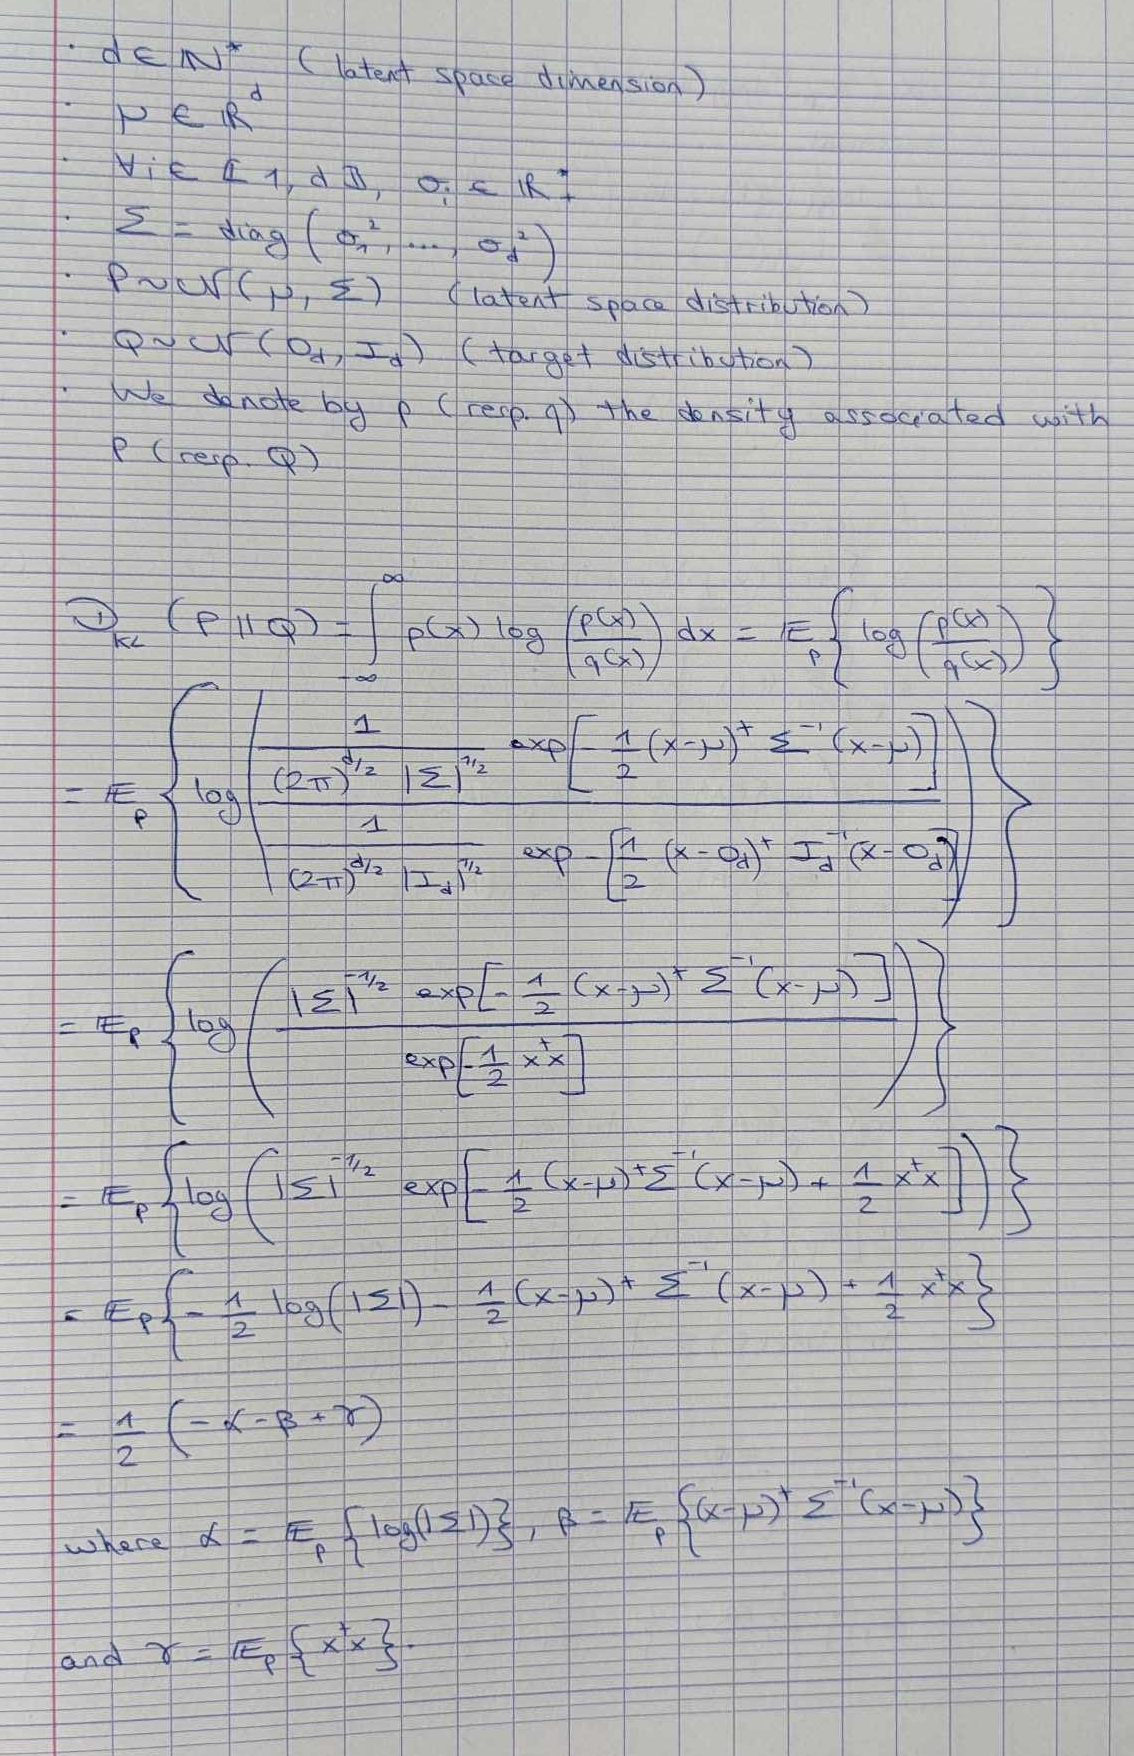 · d ∈ ℕ* (latent space dimension)
· μ ∈ ℝ^d
· ∀i ∈ ⟦1, d⟧, σ_i ∈ ℝ*_+
· Σ = diag(σ_1², ..., σ_d²)
· P ~ 𝒩(μ, Σ) (latent space distribution)
· Q ~ 𝒩(0_d, I_d) (target distribution)
· We denote by p (resp. q) the density associated with
P (resp. Q)
D_KL (P || Q) = ∫_{-∞}^{∞} p(x) log(p(x)/q(x)) dx = 𝔼_p { log(p(x)/q(x)) }
= 𝔼_p { log( (1/((2π)^{d/2} |Σ|^{1/2}) exp[-1/2 (x-μ)^t Σ^{-1} (x-μ)]) / (1/((2π)^{d/2} |I_d|^{1/2}) exp -[1/2 (x-0_d)^t I_d^{-1} (x-0_d)]) ) }
= 𝔼_p { log( (|Σ|^{-1/2} exp[-1/2 (x-μ)^t Σ^{-1} (x-μ)]) / (exp[-1/2 x^t x]) ) }
= 𝔼_p { log( |Σ|^{-1/2} exp[-1/2 (x-μ)^t Σ^{-1} (x-μ) + 1/2 x^t x] ) }
= 𝔼_p { -1/2 log(|Σ|) - 1/2 (x-μ)^t Σ^{-1} (x-μ) + 1/2 x^t x }
= 1/2 (-α - β + γ)
where α = 𝔼_p {log(|Σ|)}, β = 𝔼_p {(x-μ)^t Σ^{-1} (x-μ)}
and γ = 𝔼_p {x^t x}.